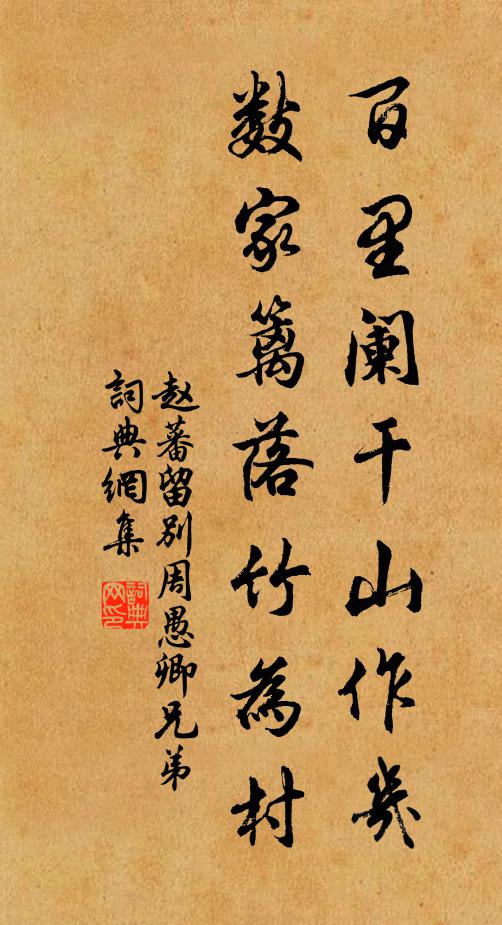 百里阑干山作幾
数家篱落竹為村
赵蕃留别周愚卿兄弟
詞典網集
詞典网印